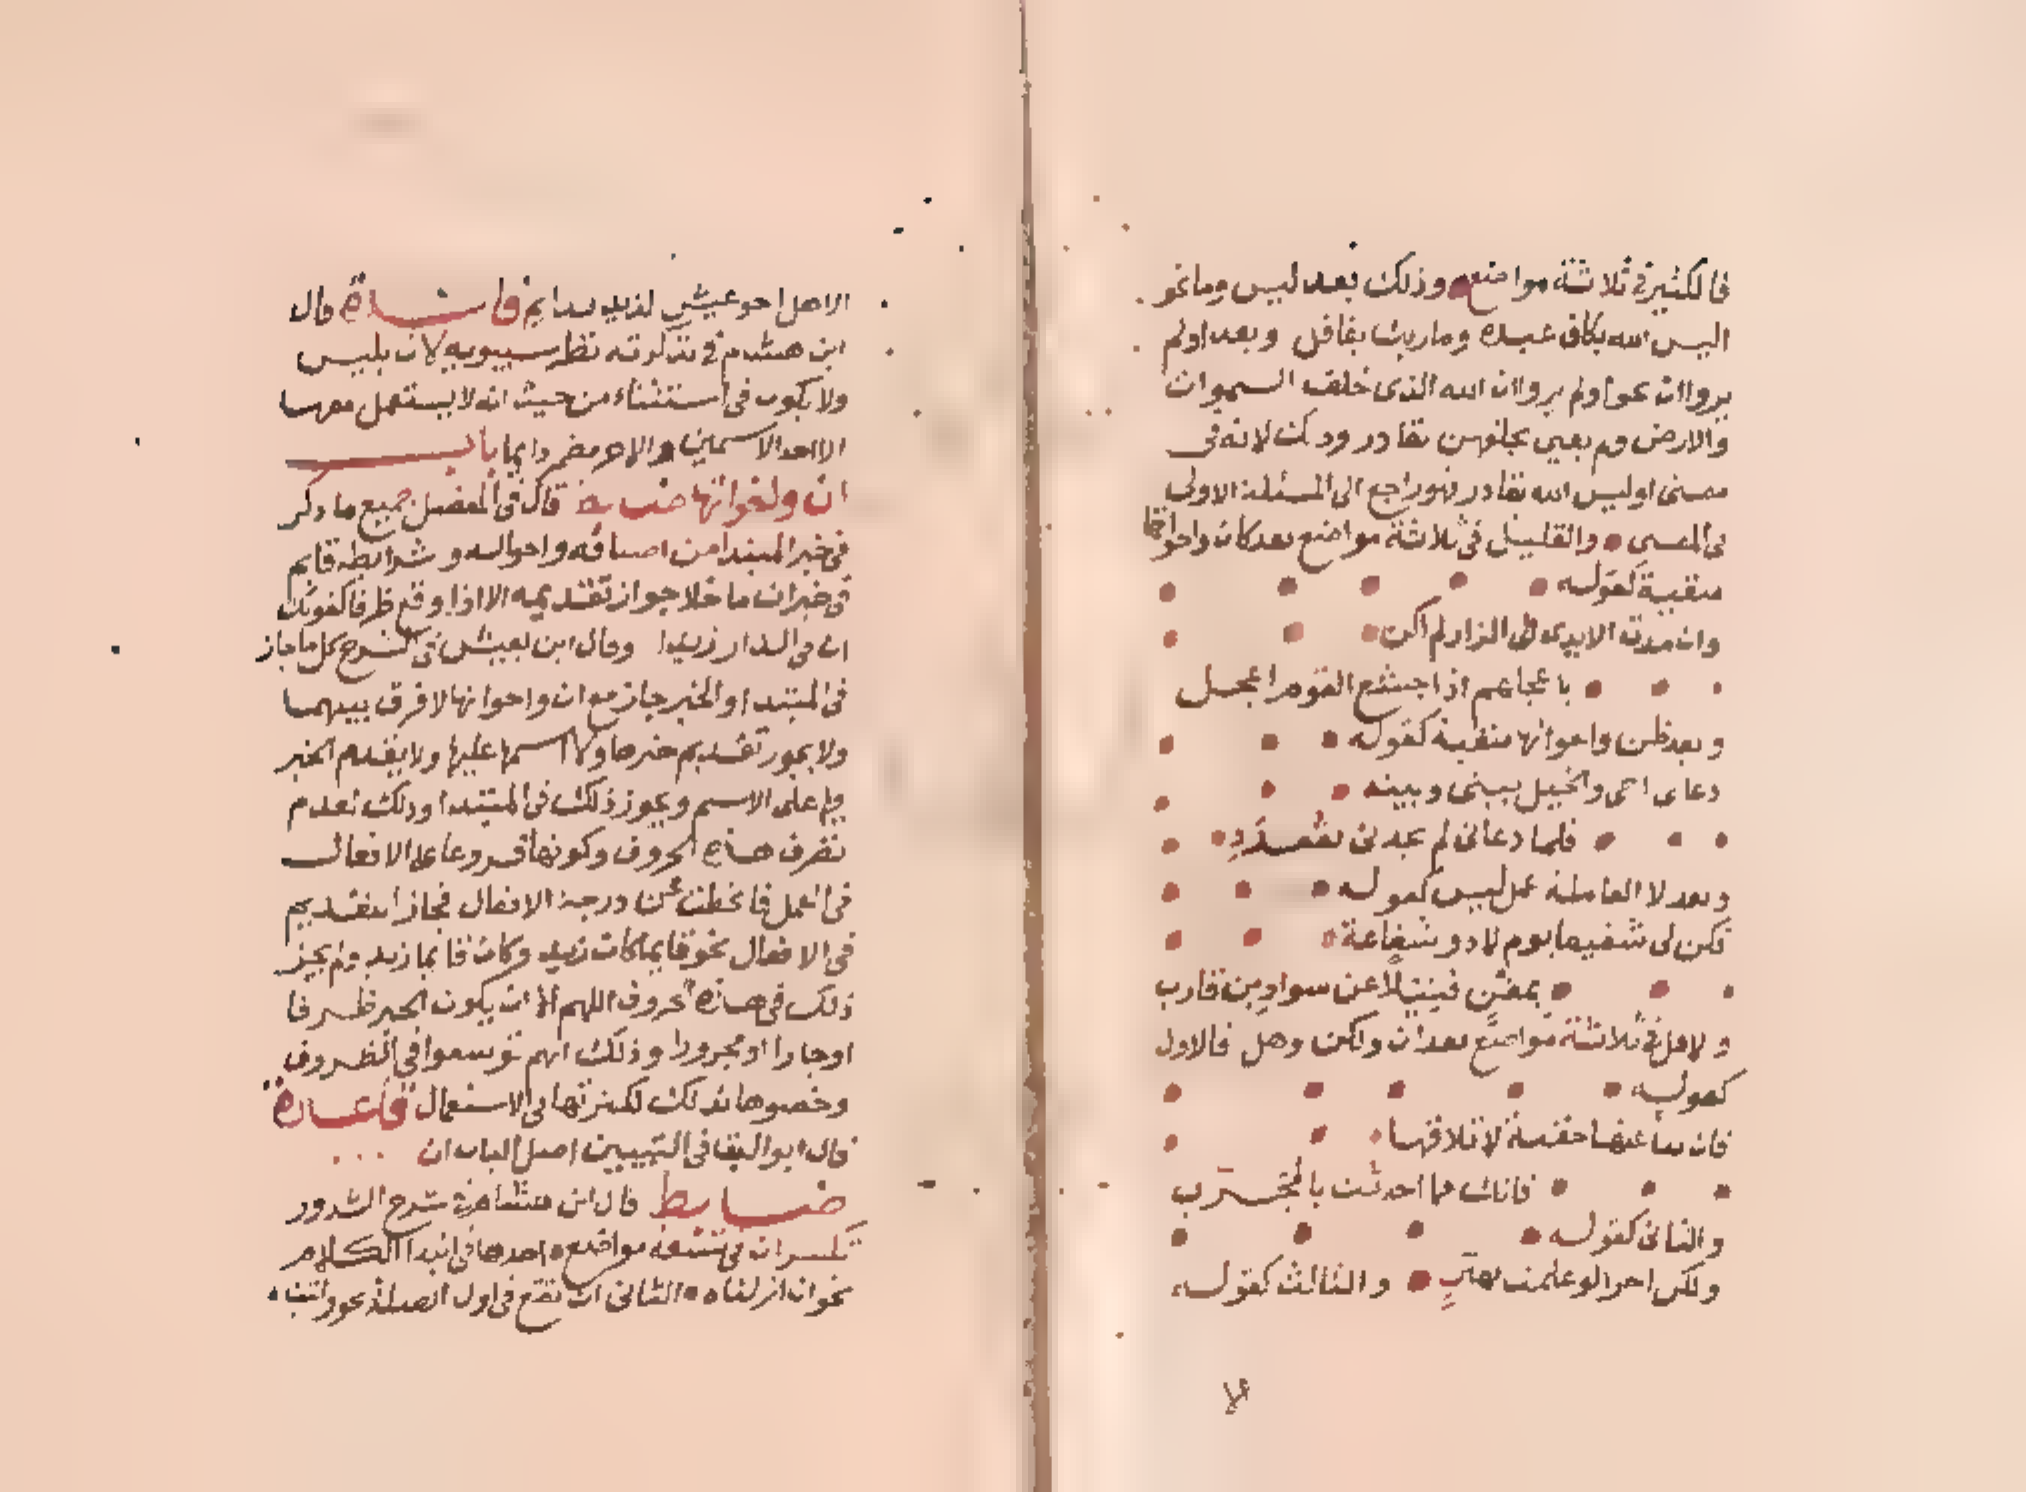 فالكثير في ثلاثة مواضع وذلك بعد ليس وما نحو
اليس الله بكاف عبده وما ربك بغافل وبعد اولم
يروا ان نحو اولم يروا ان الله الذى خلق السموات
والارض ولم يعي بخلقهن بقادر وذلك لانه فى
معنى اوليس الله بقادر فهو راجع الى المسئلة الاولى
فى المعنى والقليل فى ثلاثة مواضع بعد كان واخواتها
منفية كقوله
وان مدت الايدى الى الزاد لم اكن
باعجلهم اذ اجشع القوم اعجل
وبعد ظن واخواتها منفية كقوله
دعانى اخى والخيل بينى وبينه
فلما دعانى لم يجدنى بقعدد
وبعد لا العاملة عمل ليس كقوله
فكن لى شفيعا يوم لا ذو شفاعة
بمغن فتيلا عن سواد بن قارب
والاقل فى ثلاثة مواضع بعد ان ولكن وهل فالاول
كقوله
فان تنأ عنها حقبة لا تلاقها
فانك مما احدثت بالمجرب
والثانى كقوله
ولكن اجرا لو علمت بهين والثالث كقوله
الا
الاهل اخو عيش لذيذ بدايم فائدة قال
ابن هشام فى تذكرته نظر سيبويه لات بليس
ولا يكون فى استثناء من حيث انه لا يستعمل معها
الا احد الاسمين والاخر مضمر دايما باب
ان واخواتها ضابط قال فى المفصل جميع ما ذكر
فى خبر المبتدا من اصنافه واحواله وشرايطه قايم
فى خبر ان ما خلا جواز تقديمه الا اذا وقع ظرفا كقولك
ان فى الدار زيدا وقال ابن يعيش فى الشرح كل ما جاز
فى المبتدا والخبر جاز مع ان واخواتها لا فرق بينهما
ولا يجوز تقديم خبرها ولا اسمها عليها ولا يقدم الخبر
فيها على الاسم ويجوز ذلك فى المبتدا وذلك لعدم
تصرف هذه الحروف وكونها فروعا على الافعال
فى العمل فانحطت عن درجة الافعال فجاز التقديم
فى الافعال نحو قايما كان زيد وكان قايما زيد ولم يجز
ذلك فى هذه الحروف اللهم الا ان يكون الخبر ظرفا
او جارا او مجرورا وذلك انهم توسعوا فى الظروف
وخصوها بذلك لكثرتها فى الاستعمال قاعدة
قال ابو البقا فى التبيين اصل الباب ان
ضابط قال ابن هشام فى شرح الشذور
تكسر ان فى تسعة مواضع احدها فى ابتدا الكلام
نحو انا انزلناه الثانى ان تقع فى اول الصلة نحو واتيناه